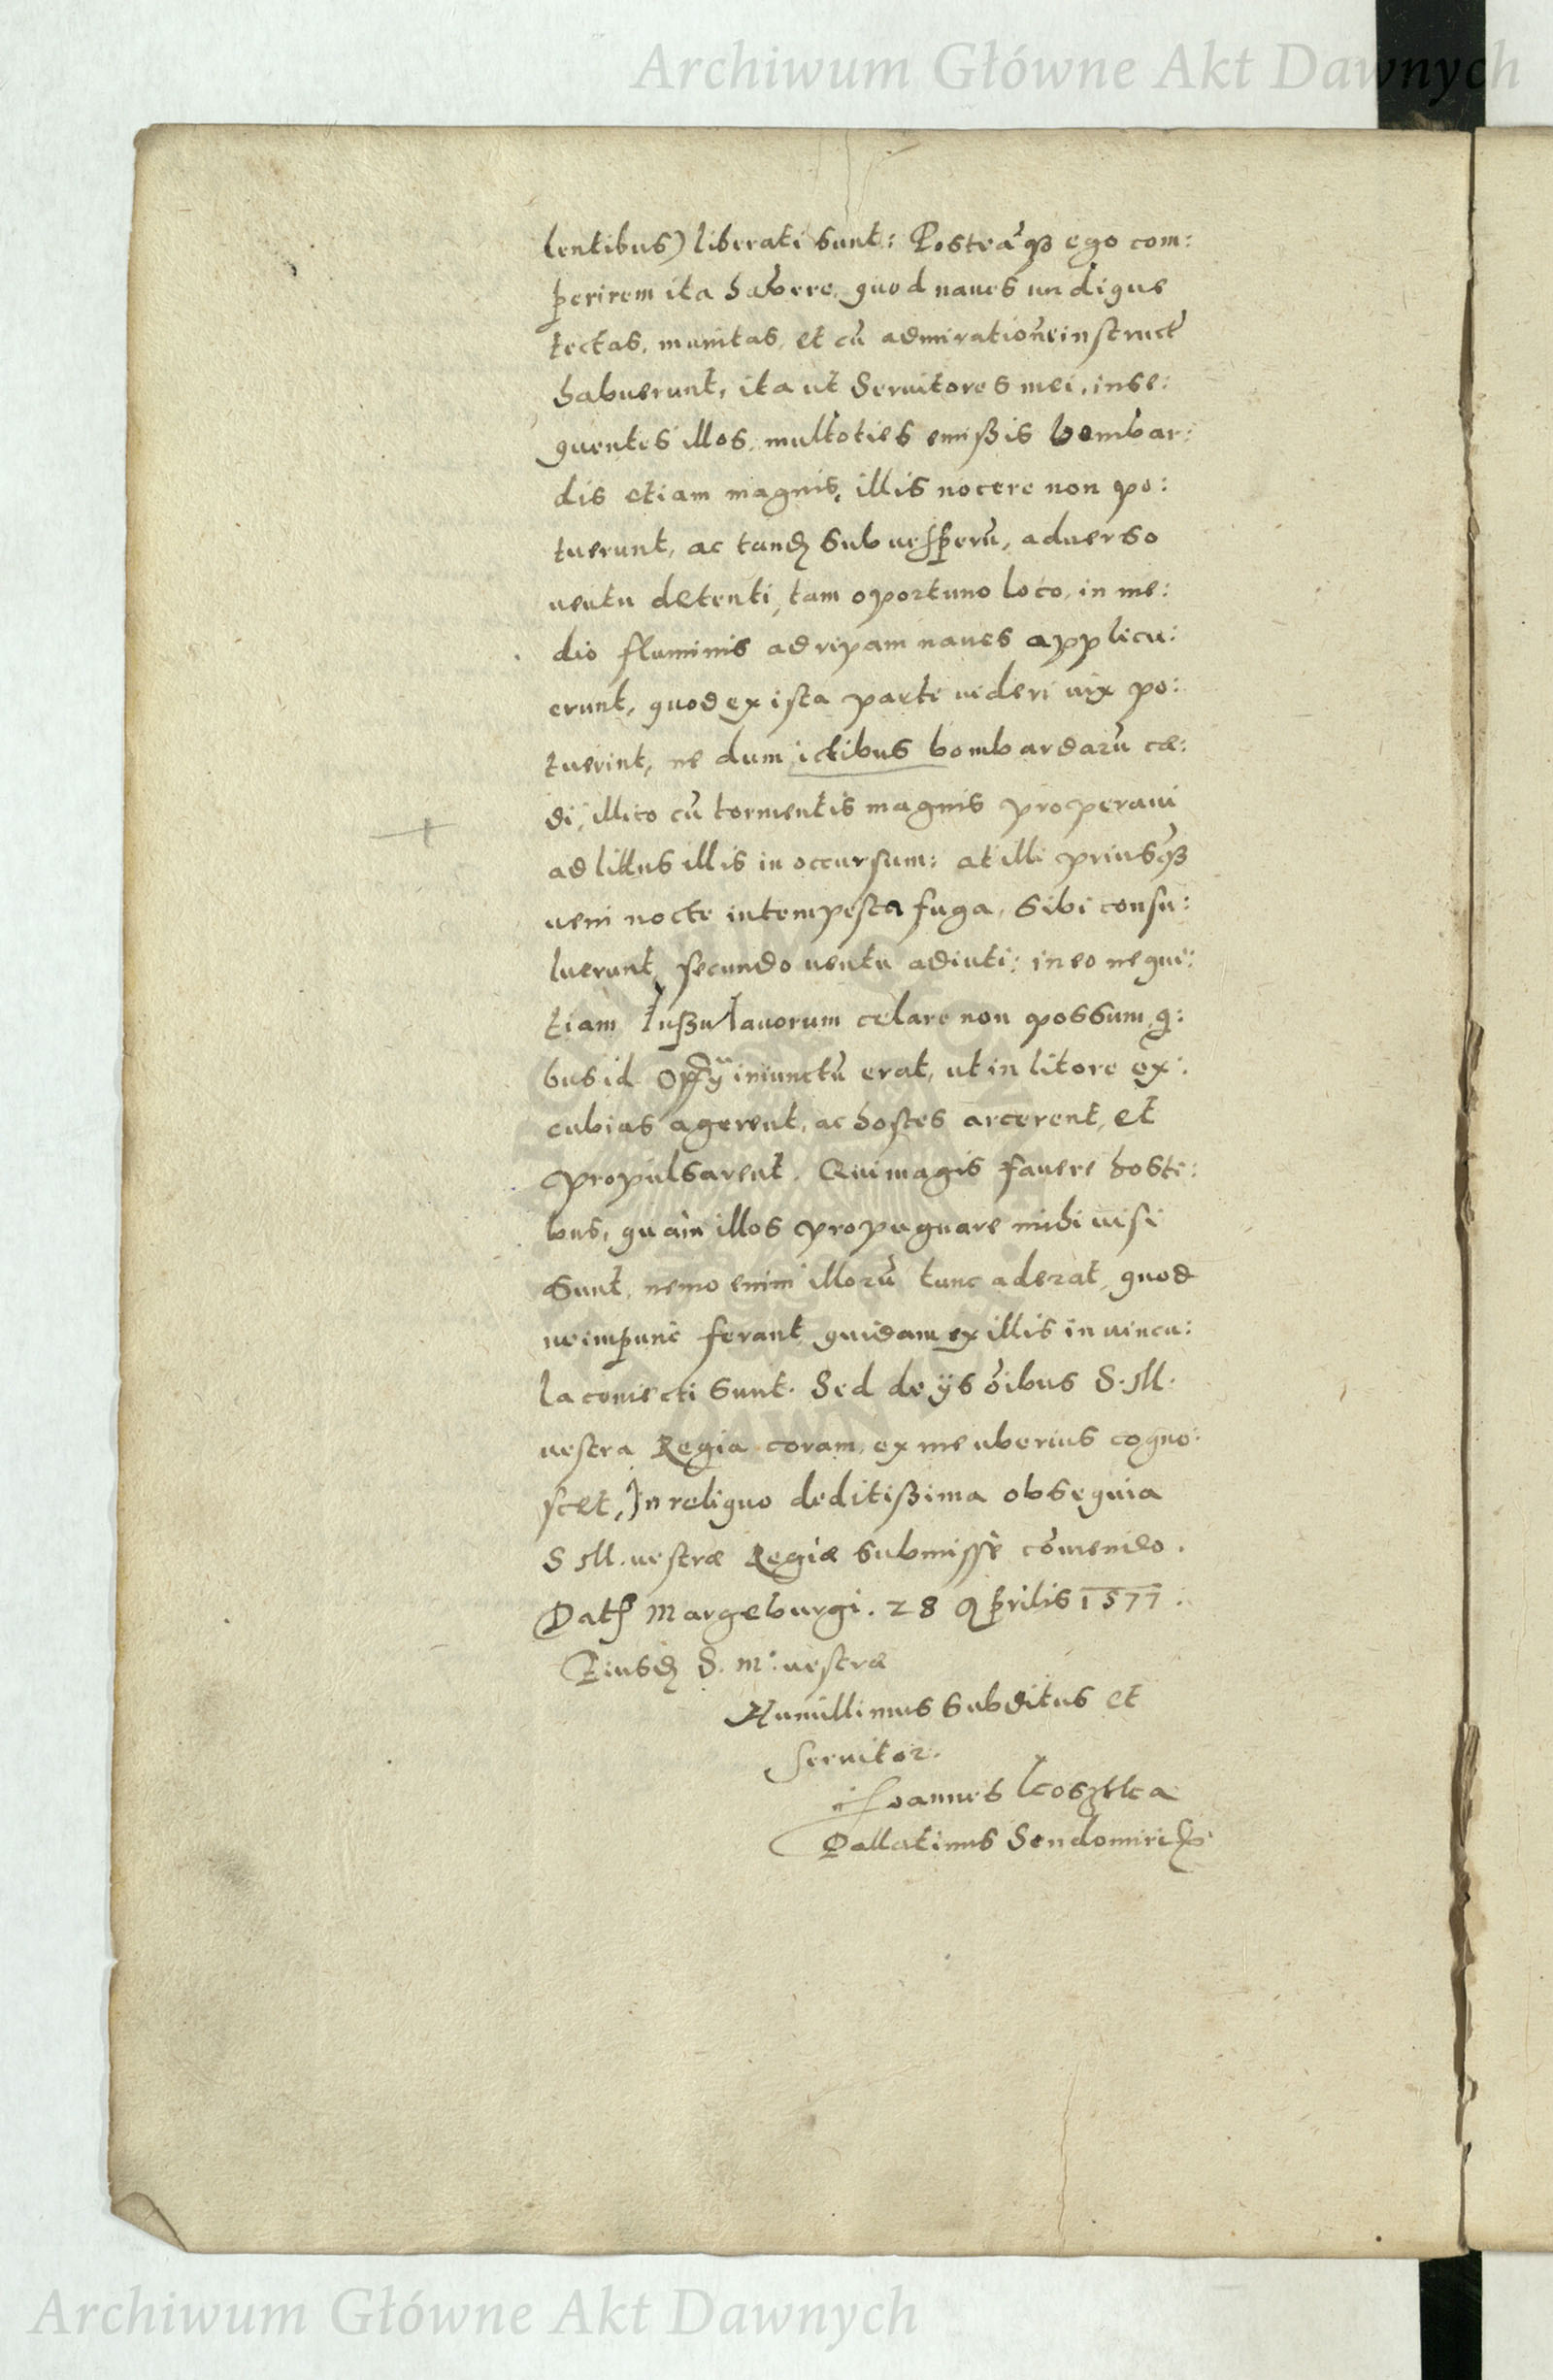 Archiwum Główne Akt Dawnych
lentibus) liberati sunt: Posteaq̃ꝫ ego com:
perirem ita habere, quod naues undique
tectas, munitas, et cũ admiratione instruct
habuerunt, ita ut Seruitores mei, inse:
quentes illos, multoties emißis bombar:
dis etiam magnis, illis nocere non po:
tuerunt, ac tandẽ sub uesperũ, aduerso
uentu detenti, tam oportuno loco, in me:
dio fluminis ad ripam naues applicu:
erunt, quod ex ista parte uideri uix po:
tuerint, ne dum ictibus bombardarũ cæ:
di, illico cũ tormentis magnis properaui
ad littus illis in occursum: at illi priusq̃ꝫ
ueni nocte intempesta fuga, sibi consu:
luerunt, secundo uentu adiuti: in eo nequi:
tiam Insulanorum celare non possum, qi:
bus id iniunctũ erat, ut in litore ex:
cubias agerent, ac hostes arcerent, et
propulsarent. Qui magis fauere hosti:
bus, quàm illos propugnare mihi uisi
sunt, nemo enim illorũ tunc aderat, quod
ne impunè ferant, quidam ex illis in uincu:
la coniecti sunt. Sed de ijs oĩbus S. M.
uestra Regia coram, ex me uberius cogno:
scet, In reliquo deditißima obsequia
S M. uestræ Regiæ submissè cõmendo.
Dat Margeburgi. 28 Aprilis 1577.
Eiusdẽ S. M: uestræ
Humillimus subditus et
seruitor.
Ioannes Kostka
Pallatinus Sendomirieñ
Archiwum Główne Akt Dawnych